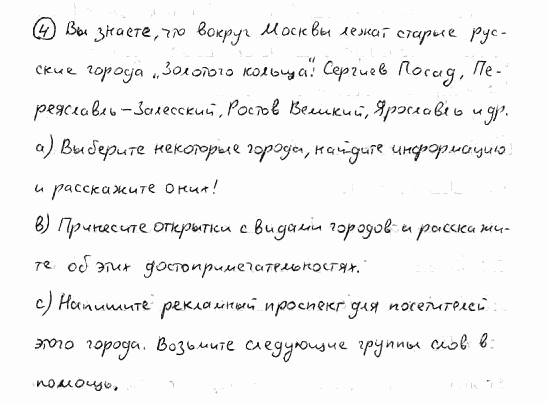 ④ Вы знаете, что вокруг Москвы лежат старые рус-
ские города „Золотого кольца": Сергиев Посад, Пе-
реяславль-Залесский, Ростов Великий, Ярославль и др.
а) Выберите некоторые города, найдите информацию
и расскажите о них!
в) Принесите открытки с видами городов и расскажи-
те об этих достопримечательностях.
с) Напишите рекламный проспект для посетителей
этого города. Возьмите следующие группы слов в
помощь.